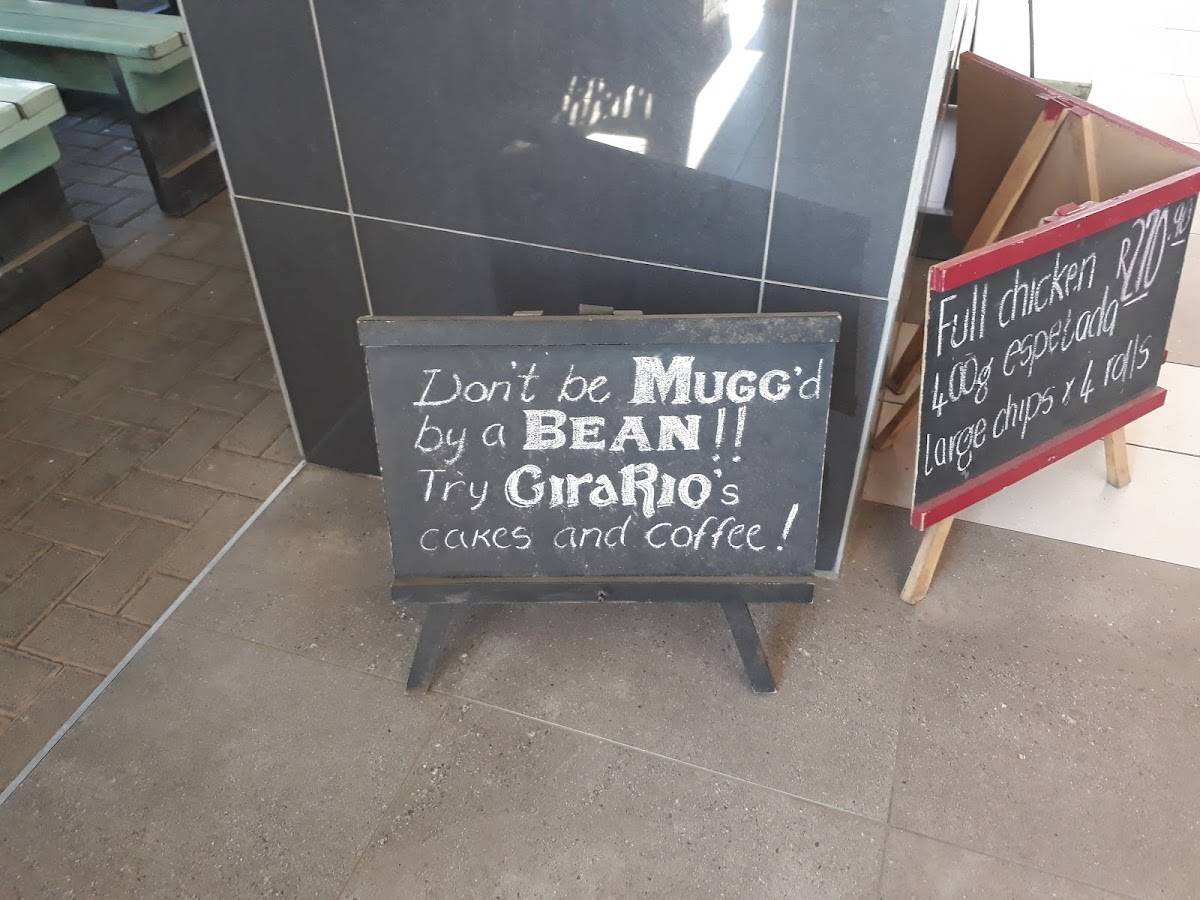 Don't be MUGG'd
by a BEAN!!
Try GIRARIO's
cakes and coffee!
Full chicken R270.90
400g espetada
Large chips x 4 rolls